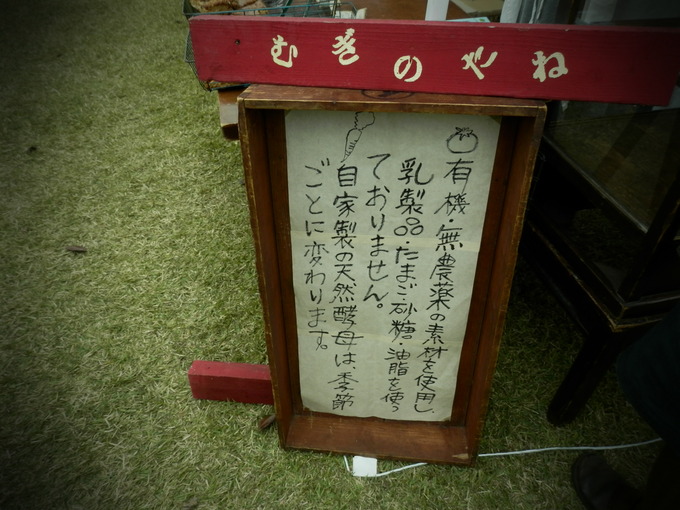 むぎのやね
有機・無農薬の素材を使用し、
乳製品・たまご・砂糖・油脂を使っ
ておりません。
自家製の天然酵母は、季節
ごとに変わります。